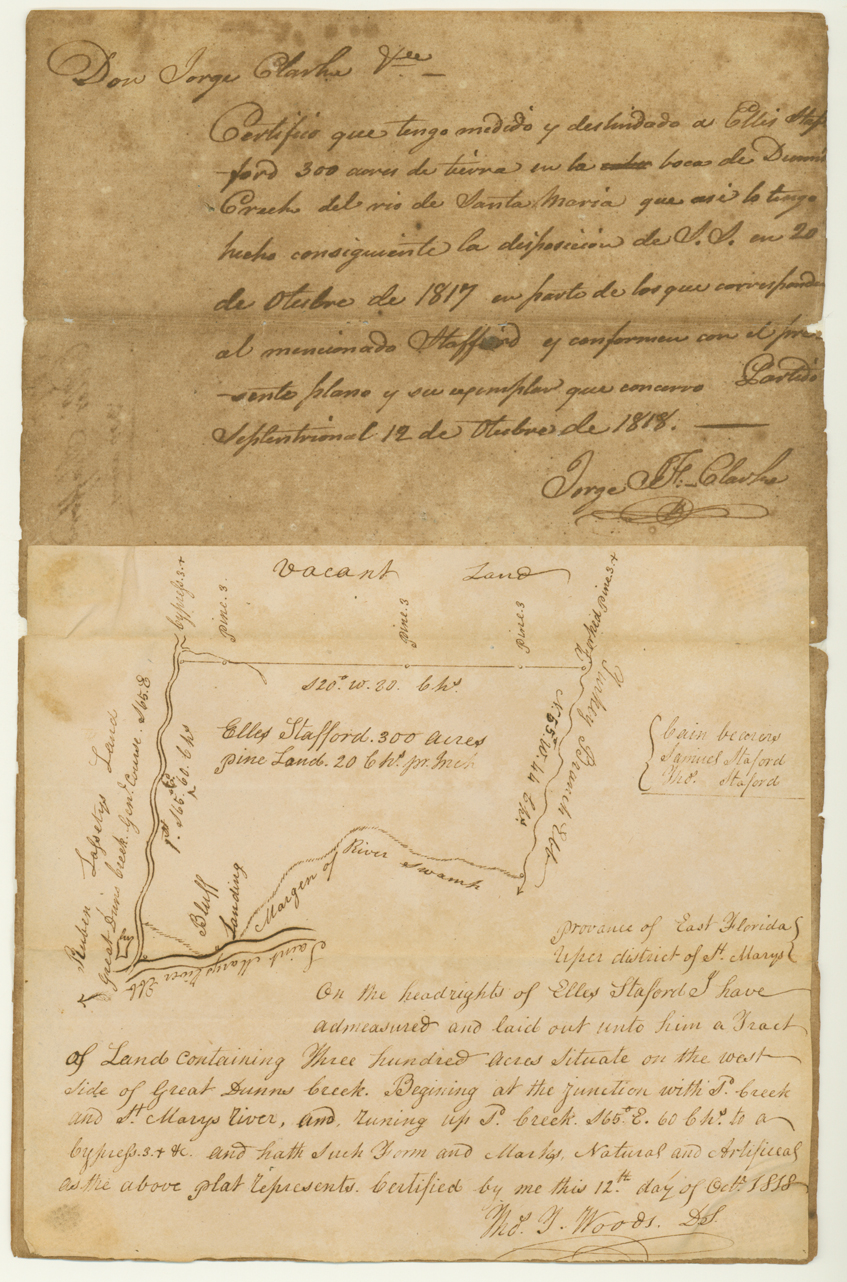 Don Jorge Clarke &ce
Certifico que tengo medido y deslindado a Ellis Staf-
-ford 300 acres de tierra en la boca de Dunn's
Creek del rio de Santa Maria que asi lo tengo
hecho consiguiente la disposicion de S. S. en 20
de Otubre de 1817 en parte de los que corresponden
al mencionado Stafford y conformen con el pre-
-sente plano y su egemplar que concervo Partido
Septentrional 12 de Otubre de 1818.
Jorge J. F. Clarke
Vacant Land
Cypress. 3. +
Pine. 3
Pine. 3
Pine 3
Forked pine 3. +
S20°. W. 20. Chs.
Ruben Lapetys Land
Great Duns Creek. Genl. Course. S65. E
1st. S65. E. 60. Chs
Elles Stafford. 300 acres
pine Land. 20 Chs. pr. Inch
N. 55. W. 44 Chs.
Turkey Branch Ebb
Cain bearers
Samuel Staford
Tho. Staford
Bluff
Landing
Margen of River Swamp
Saint Marys River Ebb
Provance of East Florida
Uper district of St. Marys
On the headrights of Elles Staford I have
admeasured and laid out unto him a Tract
of Land containing Three hundred acres Situate on the west
Side of Great Dunns Creek. Begining at the Junction with Sd. Creek
and St. Marys River, and, runing up Sd. Creek. S65°. E. 60 Chs. to a
Cypress. 3. + &c. and hath Such Form and Marks, Natural and Artificeal
as the above plat represents. Certified by me this 12th day of Octr. 1818
Tho. T. Woods. DS.